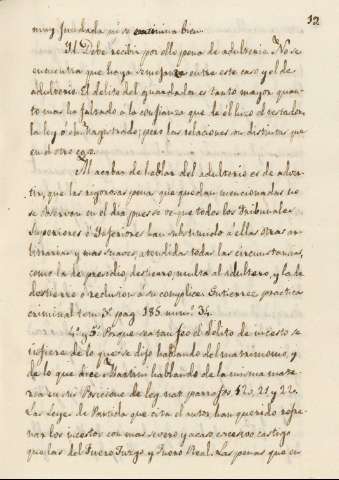 12
muy fundada ni se examina bien.
II. Debe recibir por ello pena de adulterio. No se
encuentra que haya semejanza entre este caso y el de
adulterio. El delito del guardador es tanto mayor quan-
to mas ha faltado a la confianza que de él hizo el testador,
la ley ó el Magistrado; pero las relaciones son distintas que
en el otro caso.
Al acabar de hablar del adulterio es de adver-
tir, que las rigorosas penas que quedan mencionadas no
se observan en el dia pues se ve que todos los Tribunales
Superiores é Inferiores han substituido á ellas otras ar-
bitrarias y mas suaves, atendidas todas las circunstancias,
como la de presidio, destierro, multa al adultero, y la de
destierro ó reclusion á su complice. Gutierrez practica
criminal tom. 3º pag. 185. num.º 34.
4º y 5º Porque sea tan feo el delito de incesto se
infiere de lo que se dijo hablando del matrimonio, y
de lo que dice hablando de la misma mate-
ria en su de ley nat. parrafos 12, 21 y 22.
Las Leyes de Partida que cita el autor han querido refre-
nar los incestos con mas severo y acaso excesivo castigo
que las del Fuero Juzgo y Fuero Real. Las penas que en